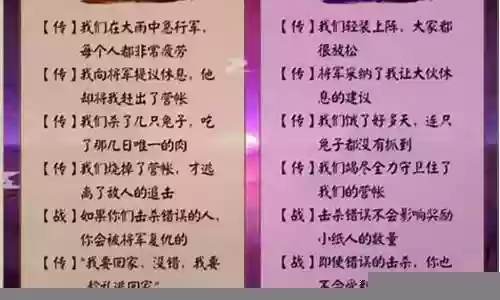 【传】我们在大雨中急行军，
每个人都非常疲劳
【传】我向将军提议休息，他
却将我赶出了营帐
【传】我们杀了几只兔子，吃
了那几日唯一的肉
【传】我们烧掉了营帐，才逃
离了敌人的追击
【战】如果你们击杀错误的人，
你会被将军复仇的
【传】“我要回家，没错，我要
趁乱逃回家”
【传】我们轻装上阵，大家都
很放松
【传】将军采纳了我让大伙休
息的建议
【传】我们饿了好多天，连只
兔子都没有抓到
【传】我们竭尽全力守卫住了
我们的营帐
【战】击杀错误不会影响奖励
小纸人的数量
【战】即使错误的击杀，你也
不会受到